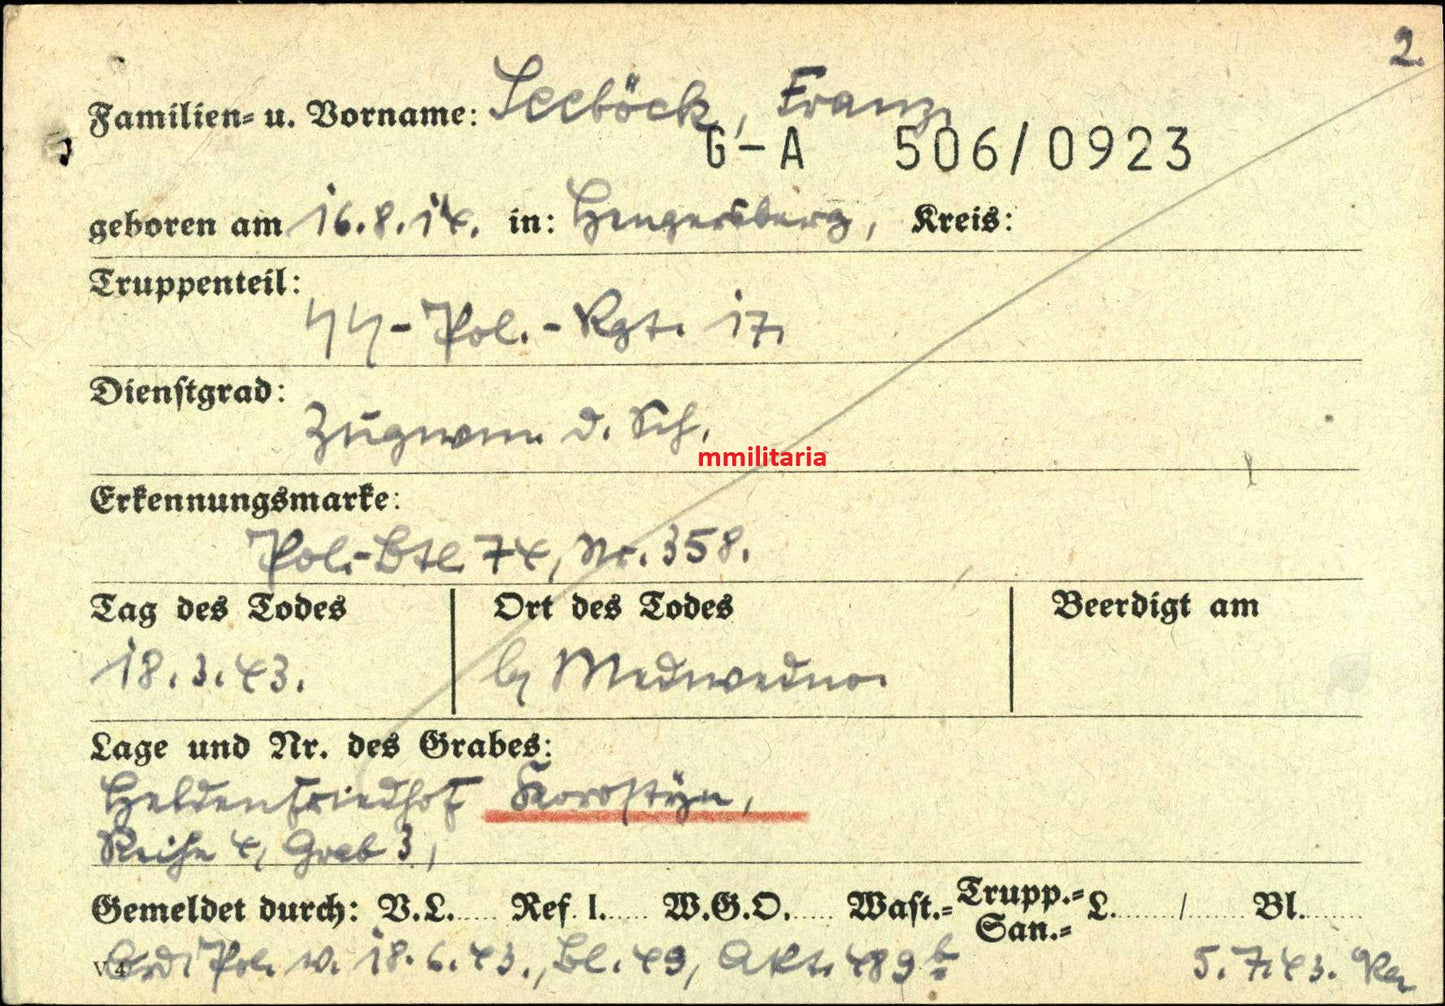 2.
Familien- u. Vorname: Seeböck, Franz,
G-A 506/0923
geboren am 16.8.14. in: Hengersberg, Kreis:
Truppenteil:
SS-Pol.-Rgt. 17,
Dienstgrad:
Zugwm. d. Sch.
mmilitaria
Erkennungsmarke:
Pol.-Btl. 74, Nr. 358.
Tag des Todes Ort des Todes Beerdigt am
18.3.43. Medwedno.
Lage und Nr. des Grabes:
Heldenfriedhof Korostyn,
Reihe 4, Grab 3,
Gemeldet durch: V.L..... Ref. I..... W.G.O..... Wast.- Trupp.- San.- L......./....... Bl.......
V 4 Pol. v. 18.6.43., Bl. 49, Akt. 489 b 5.7.43.